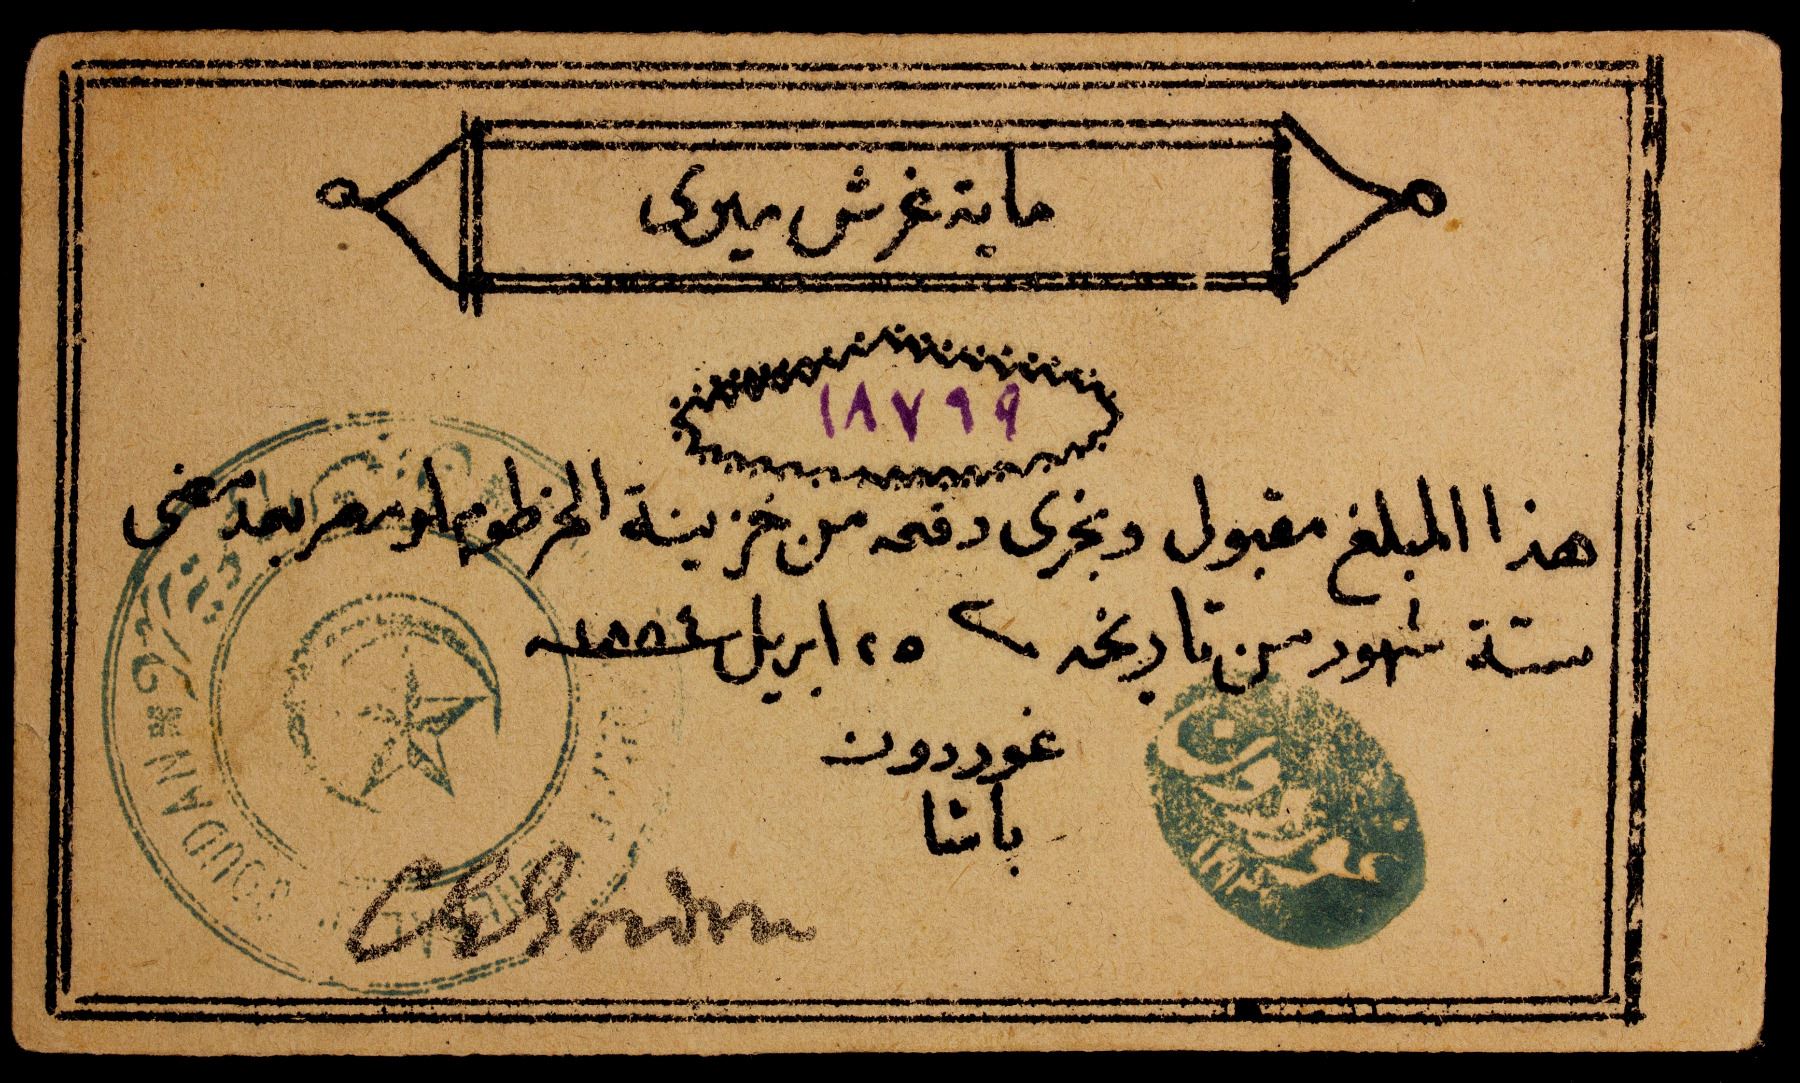 ماية غرش ميرى
١٨٧٩٩
هذا المبلغ مقبول ويجرى دفعه من خزينة الخرطوم او مصر بعد مضى
ستة شهور من تاريخه ٢٥ ابريل ١٨٨٤سنه
غوردون
باشا
C E Gordon
SOUDAN